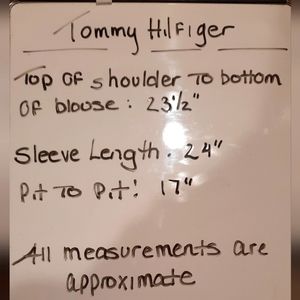 Tommy Hilfiger
Top of shoulder to bottom
of blouse : 23½"
Sleeve Length. 24"
Pit to Pit! 17"
All measurements are
approximate